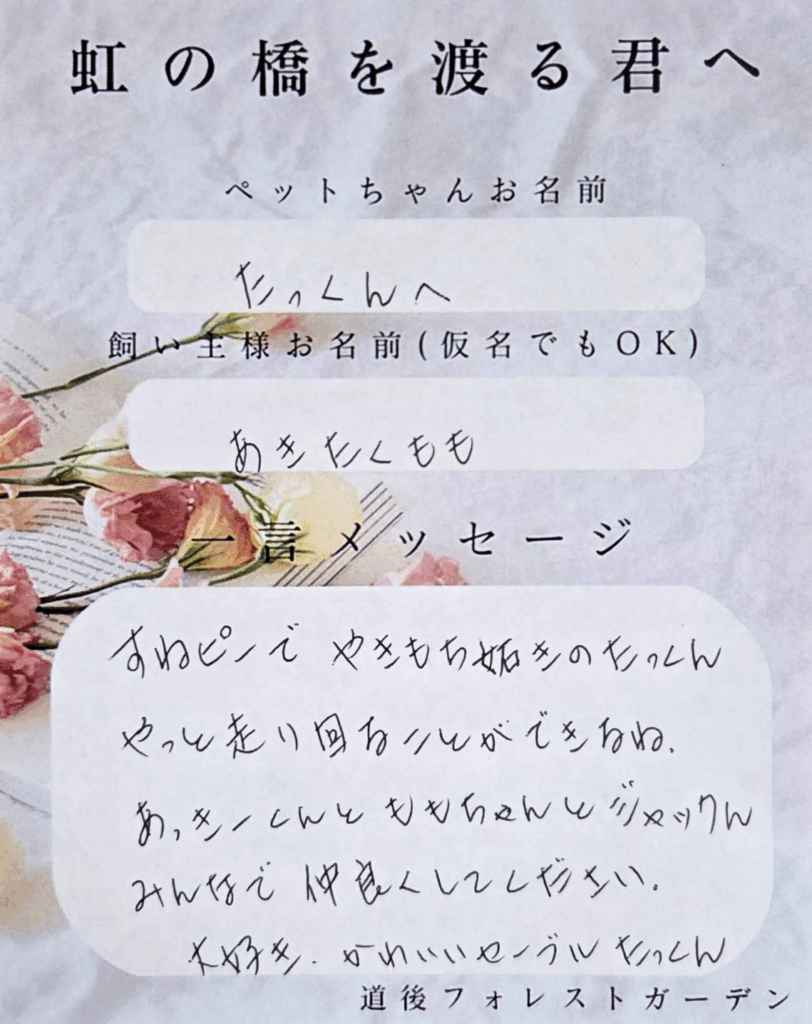 虹の橋を渡る君へ
ペットちゃんお名前
たっくんへ
飼い主様お名前(仮名でもOK)
あきたくもも
一言メッセージ
すねピンで やきもち妬きのたっくん
やっと走り回ることができるね.
あっきーくんと ももちゃんとジャックん
みんなで 仲良くしてください.
大好き. かわいいセーブル たっくん
道後フォレストガーデン